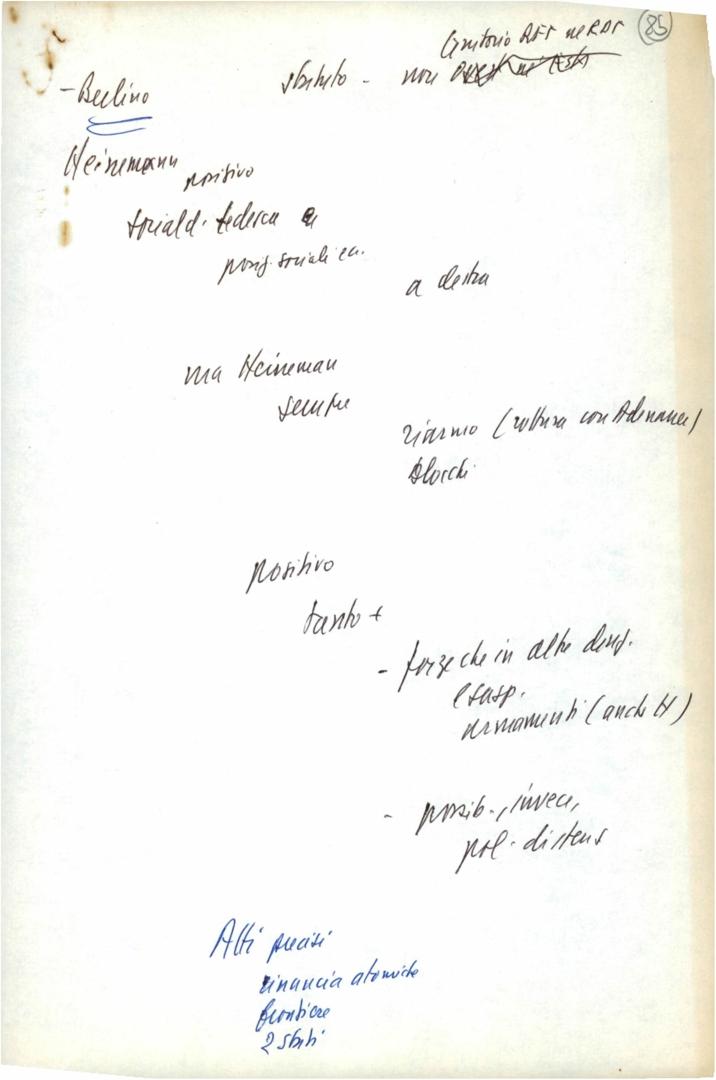 85
territorio RFT né RDT
- Berlino statuto - non
Heinemann
positivo
sociald. tedesca
posiz. sociali ecc.
a destra
ma Heineman
sempre
riarmo (rottura con Adenauer)
blocchi
positivo
tanto +
- forze che in altre
esasp.
armamenti (anche H)
- possib., invece,
pol. distens
Atti precisi
rinuncia atomiche
frontiere
2 stati